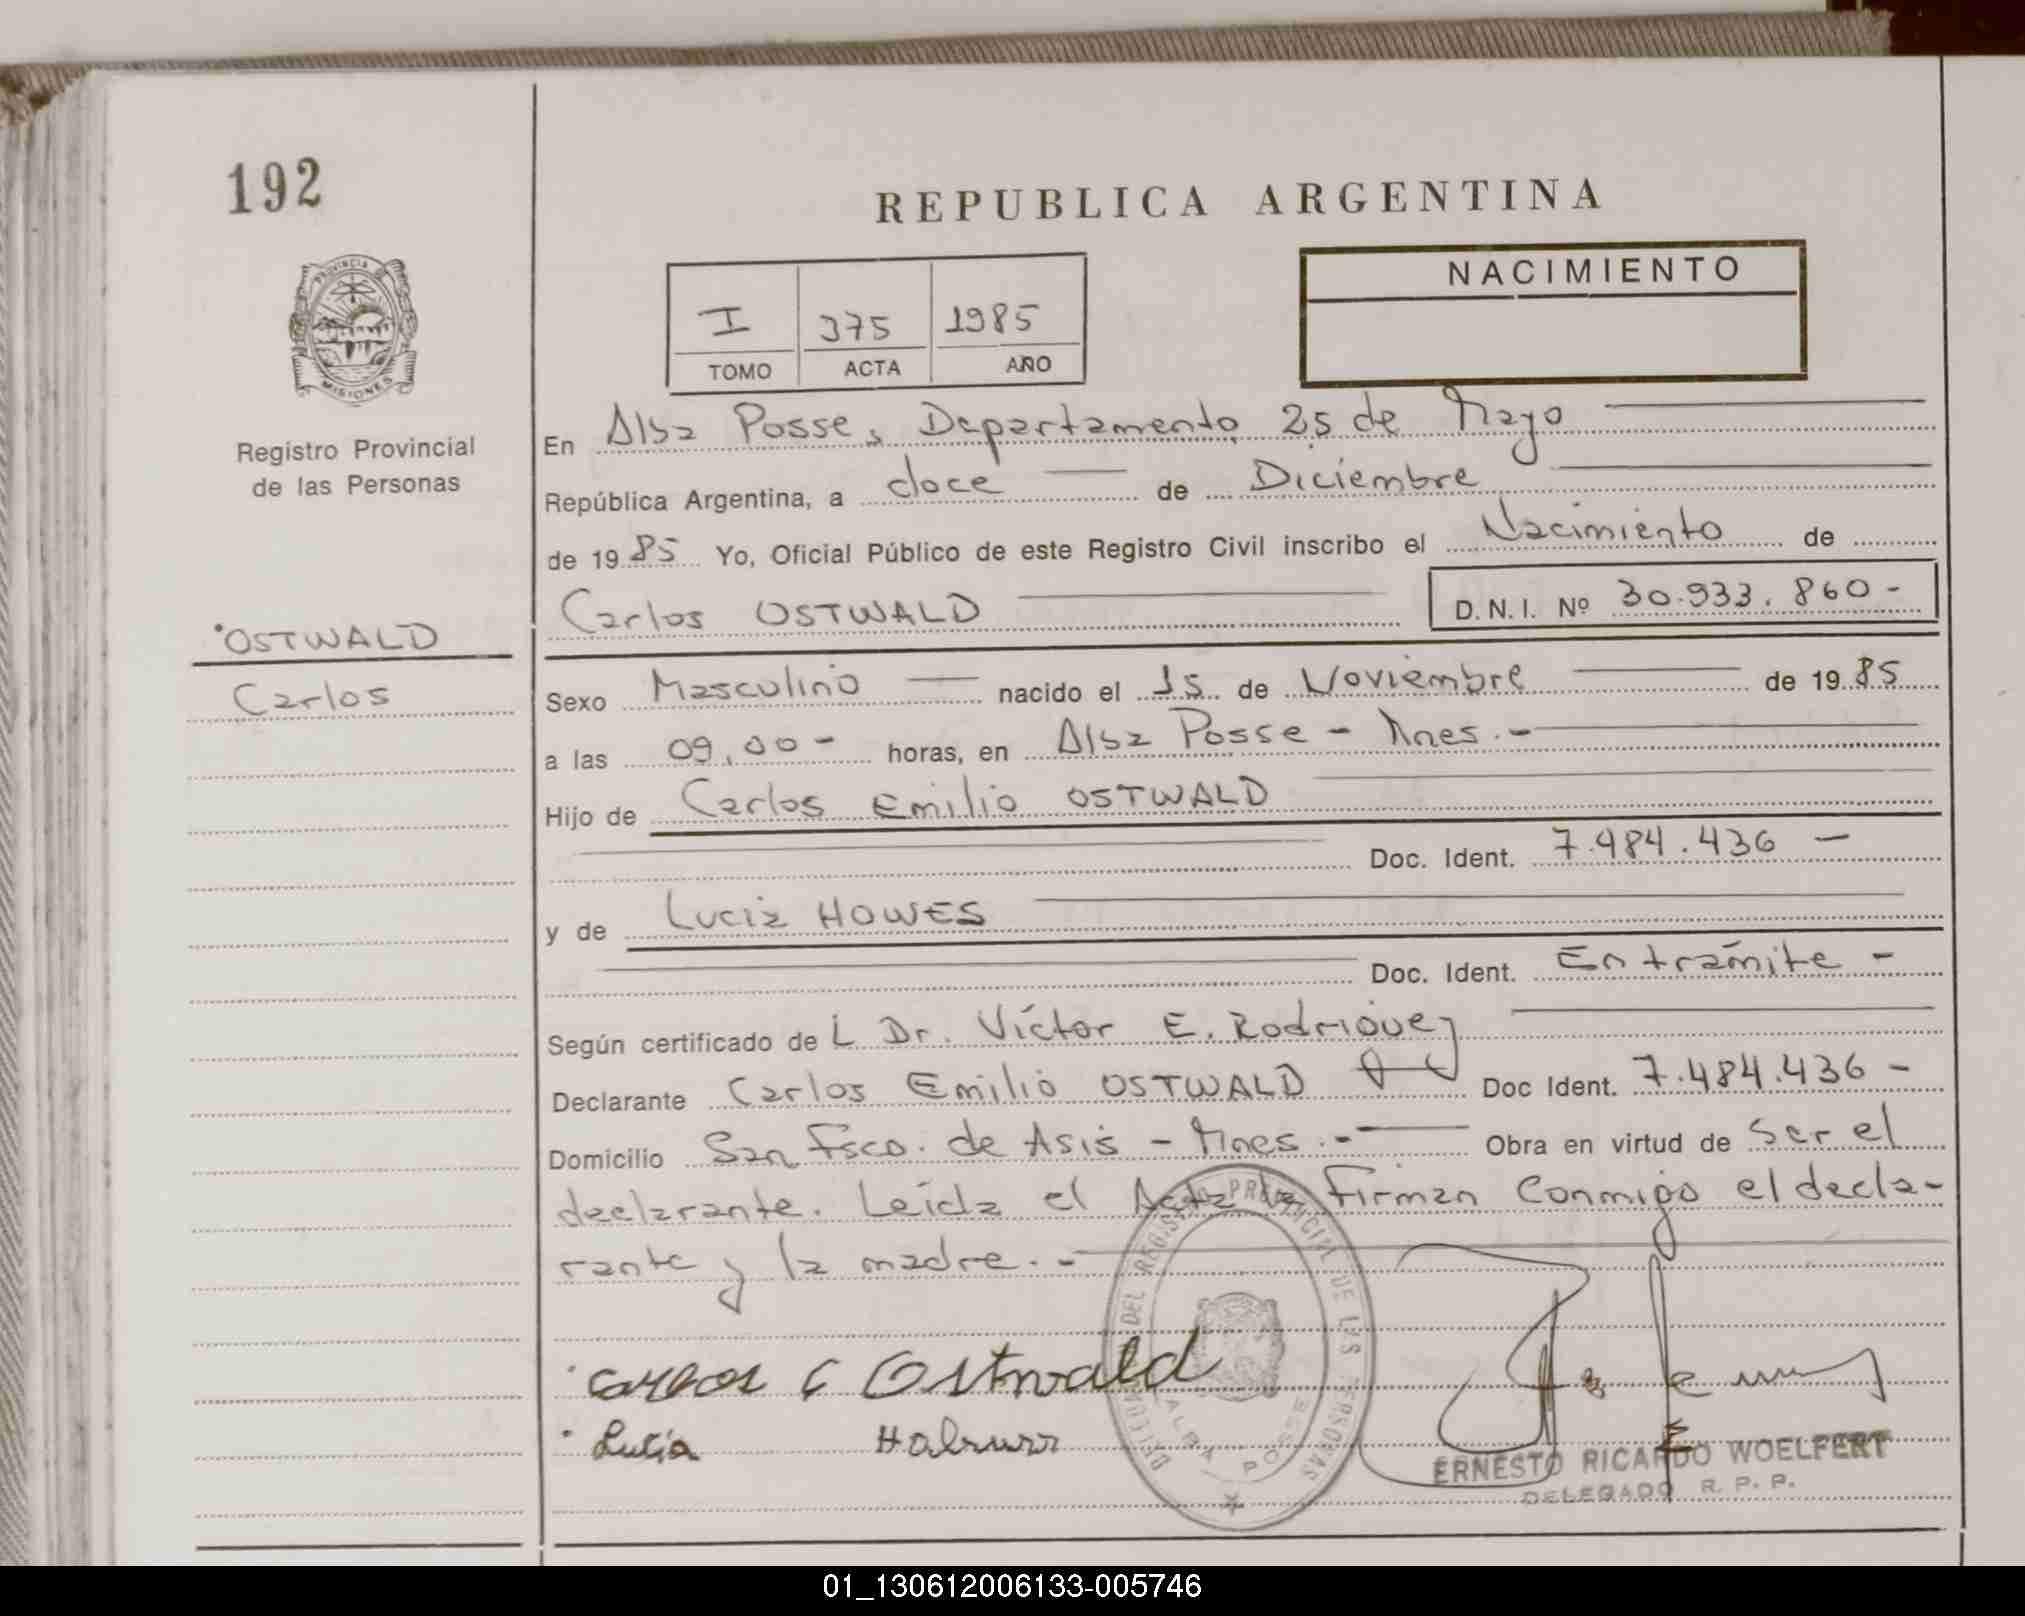 192
REPUBLICA ARGENTINA
NACIMIENTO
PROVINCIA DE
MISIONES
I 375 1985
TOMO ACTA AÑO
Registro Provincial
de las Personas
OSTWALD
Carlos
En Alba Posse, Departamento 25 de Mayo
República Argentina, a doce de Diciembre
de 1985 Yo, Oficial Público de este Registro Civil inscribo el Nacimiento de
Carlos OSTWALD D. N. I. Nº 30.933.860-
Sexo Masculino nacido el 15 de Noviembre de 1985
a las 09,00- horas, en Alba Posse - Mnes.-
Hijo de Carlos Emilio OSTWALD
Doc. Ident. 7.484.436 -
y de Lucia HOWES
Doc. Ident. En trámite -
Según certificado de L Dr. Víctor E. Rodriguez
Declarante Carlos Emilio OSTWALD Doc Ident. 7.484.436 -
Domicilio San Fsco. de Asis - Mnes.- Obra en virtud de Ser el
declarante. Leída el Acta la Firman Conmigo el decla-
rante y la madre.-
Carlos E Ostwald
Lucia
DELEGACION DEL REGISTRO PROVINCIAL DE LAS PERSONAS
ALBA POSSE
ERNESTO RICARDO WOELFERT
DELEGADO R. P. P.
01_130612006133-005746